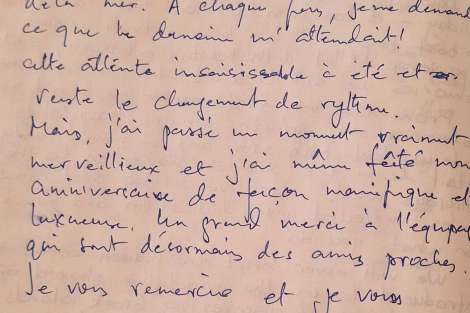 de la mer. A chaque fois, je me demand
ce que le demain m'attendait!
cette attente insaisissable à été et
reste le changement de rythme.
Mais, j'ai passé un moment vraiment
merveillieux et j'ai même fêté mon
anniversaire de façon manifique et
luxueuse. Un grand merci à l'équipag
qui sont désormais des amis proches.
Je vous remercie et je vous